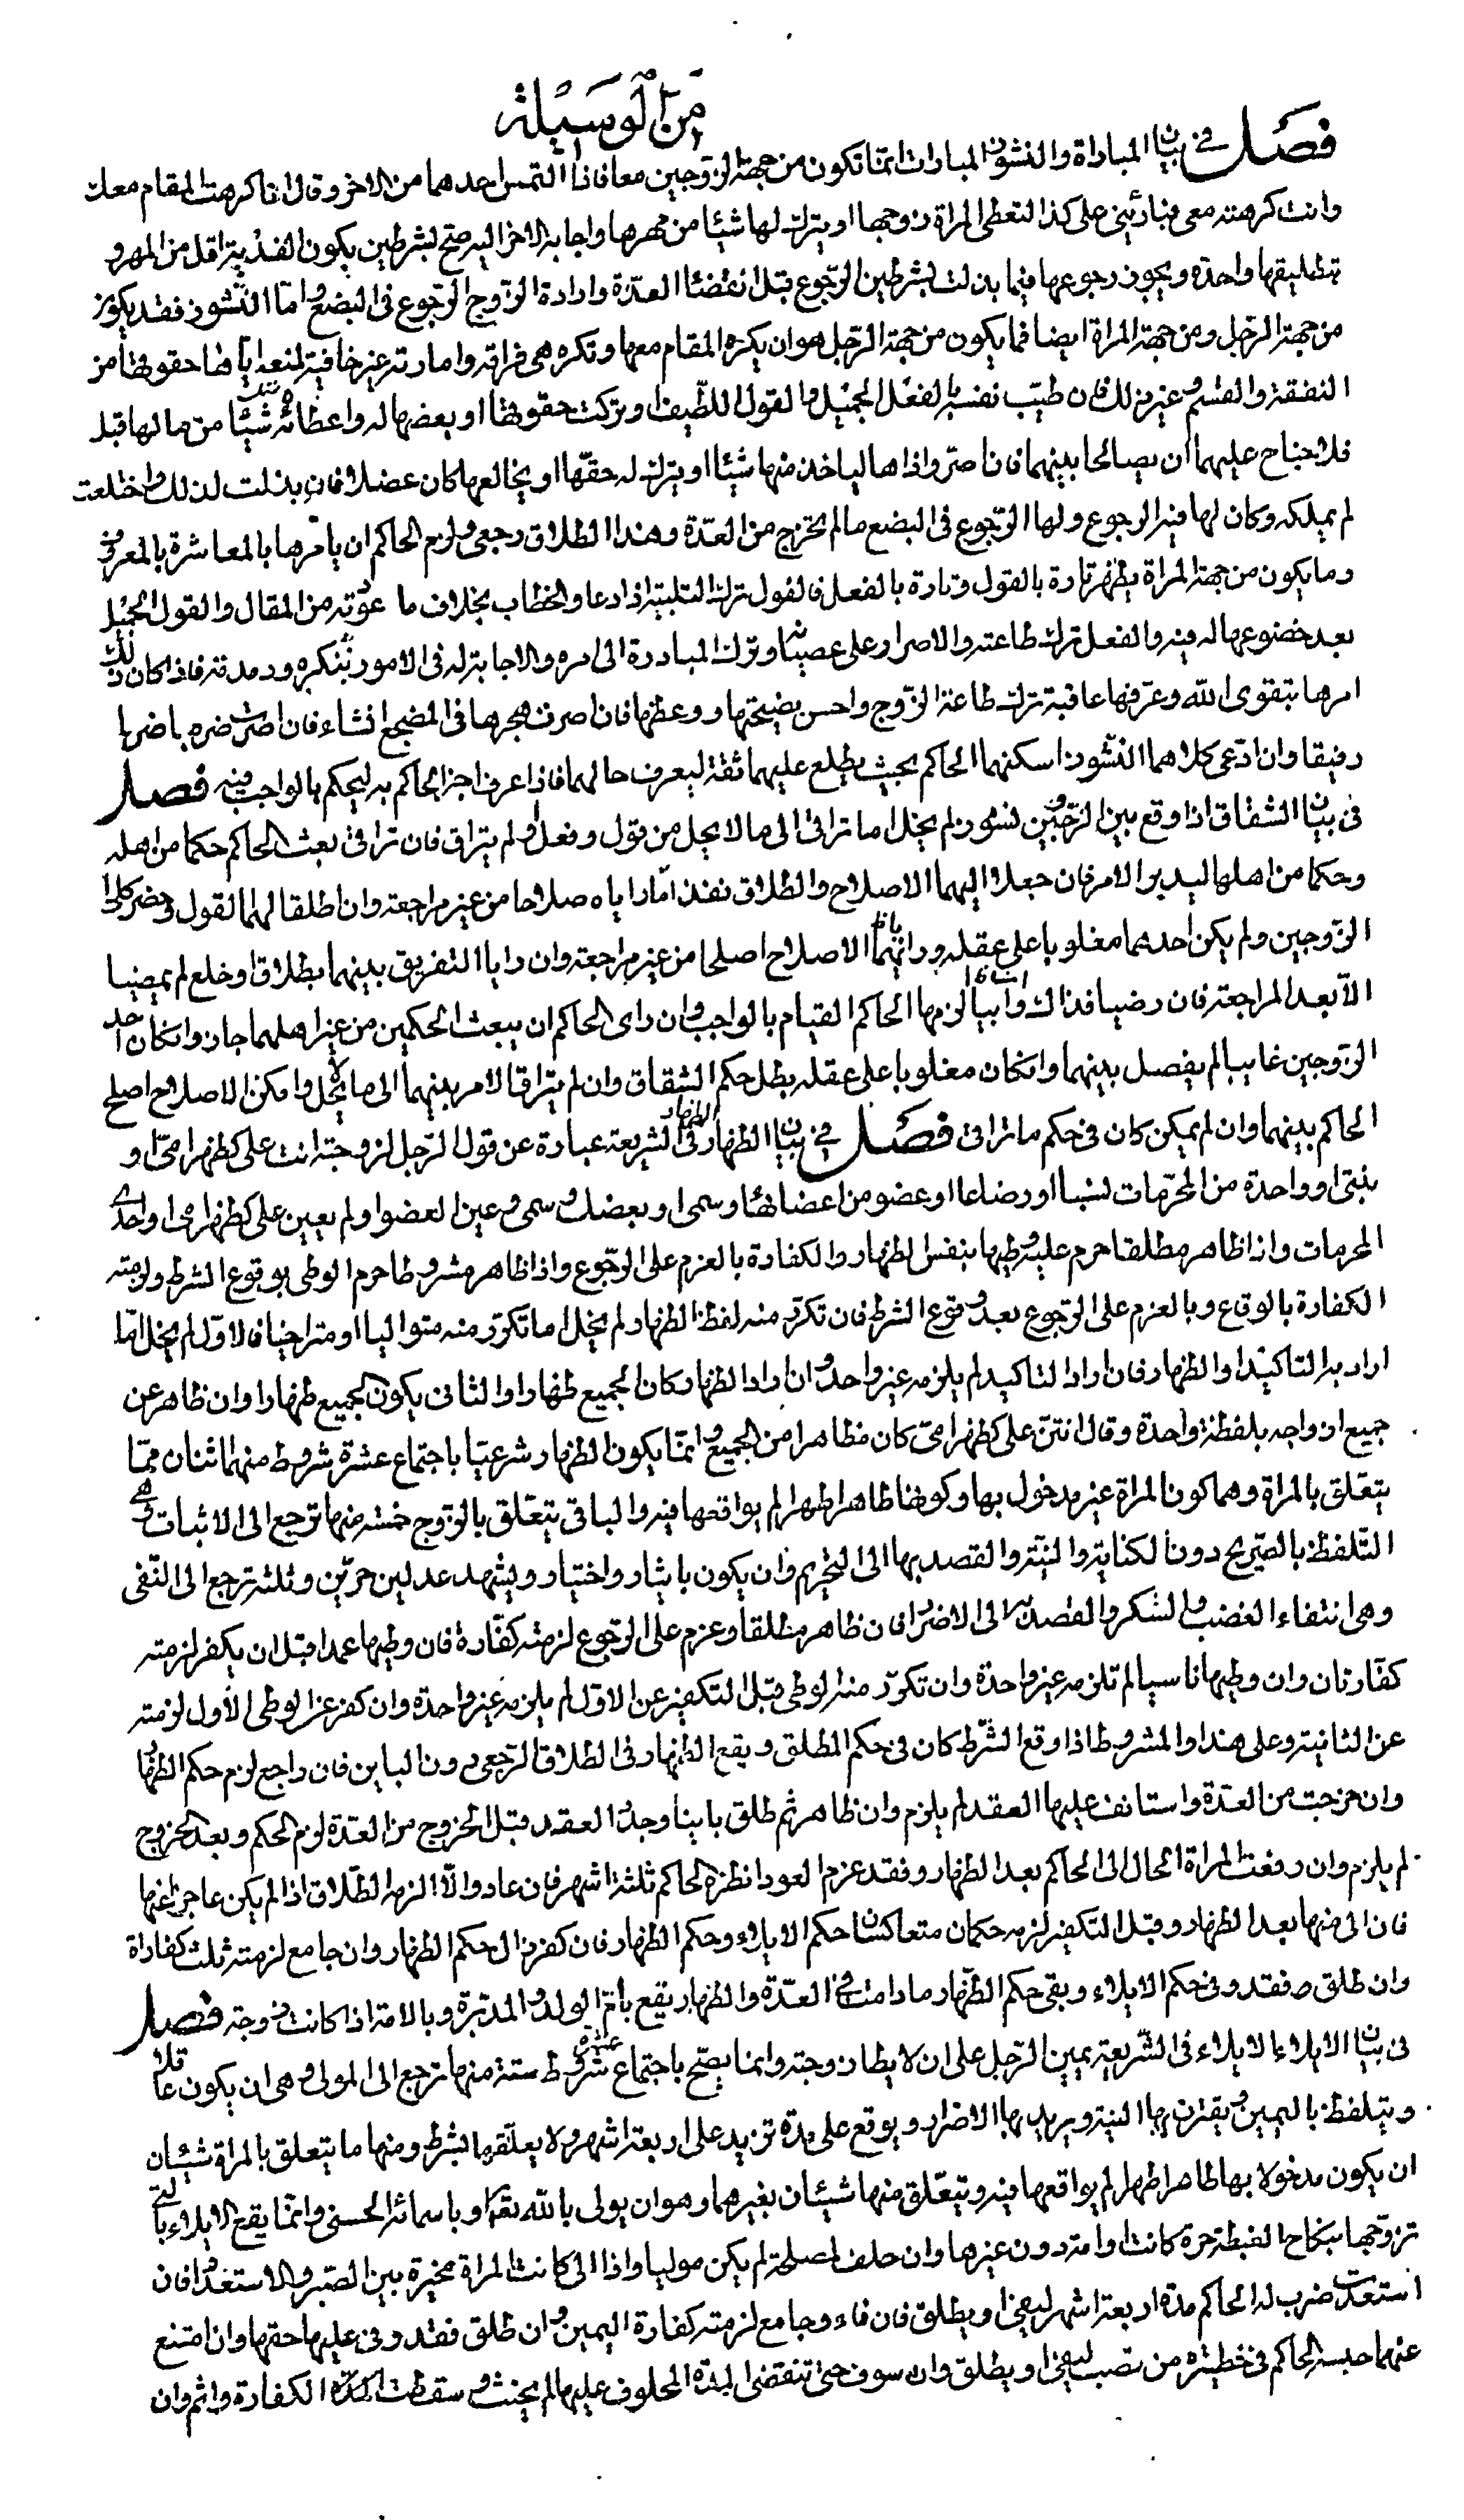 من الوسيلة
فصل في بيان المباراة والنشوز المبارات انما تكون من جهة الزوجين معا فاذا التمس احدهما من الاخر وقال انا كرهت المقام معك
وانت كرهته معى فبارئينى على كذا لتعطى المراة زوجها او يترك لها شيئا من مهرها واجابه الاخر اليه صح بشرطين يكون الفدية اقل من المهر و
تطليقها واحدة ويجوز رجوعها فيما بذلت بشرطين الرجوع قبل انقضاء العدة وارادة الزوج الرجوع في البضع واما النشوز فقد يكون
من جهة الرجل ومن جهة المراة ايضا فما يكون من جهة الرجل هو ان يكره المقام معها وتكره هى فراقه وامارته غير خافية لمنعه اياها حقوقها من
النفقة والقسم وغير ذلك فان طيب نفسه بالفعل الجميل والقول اللطيف وتركت حقوقها او بعضها له واعطائه شيئا من مالها قبل
فلا جناح عليهما ان يصالحا بينهما فان اضر واذاها لياخذ منها شيئا او يترك له حقها او يخالعها كان عضلا فان بذلت لذلك واختلعت
لم يملكه وكان لها فيه الرجوع ولها الرجوع في البضع ما لم تخرج من العدة وهذا الطلاق رجعى ولزم الحاكم ان يامرها بالمعاشرة بالمعروف
وما يكون من جهة المراة يظهر تارة بالقول وتارة بالفعل فالقول ترك التلبية اذا دعا والخطاب بخلاف ما عودته من المقال والقول الجميل
بعد خضوعها له فيه والفعل ترك طاعته والاصرار على عصيانه وترك المبادرة الى امره والاجابة له في الامور بتكره ودمدمة فاذا كان ذلك
امرها بتقوى الله وعرفها عاقبة ترك طاعة الزوج واحسن نصيحتها ووعظها فان اصرت هجرها في المضجع ان شاء فان اصرت ضربها ضربا
رفيقا وان ادعى كلاهما النشوز اسكنهما الحاكم بحيث يطلع عليهما ثقة ليعرف حالهما فاذا عرف اخبر الحاكم به ليحكم بالواجب فيه فصل
في بيان الشقاق اذا وقع بين الزوجين نشوز لم يخل اما ترافى الى ما لا يحل من قول وفعل او لم يتراق فان تراقى بعث الحاكم حكما من اهله
وحكما من اهلها ليدبر الامر فان جعلا اليهما الاصلاح والطلاق نفذ ما راياه صلاحا من غير مراجعة وان اطلقا لهما القول وحضر كلا
الزوجين ولم يكن احدهما مغلوبا على عقله وراياهما الاصلاح اصلحا من غير مراجعة وان رايا التفريق بينهما بطلاق او خلع لم يمضيا
الا بعد المراجعة فان رضيا فذاك وان ابيا الزمهما الحاكم القيام بالواجب وان راى الحاكم ان يبعث الحكمين من غير اهلهما جاز وان كان احد
الزوجين غايبا لم يفصل بينهما وان كان مغلوبا على عقله بطل حكم الشقاق وان لم يتراق الامر بينهما الى ما لا يحل وامكن الاصلاح اصلح
الحاكم بينهما وان لم يمكن كان في حكم ما تراقى فصل في بيان الظهار الظهار في الشريعة عبارة عن قول الرجل لزوجته انت على كظهر امى او
بنتى او واحدة من المحرمات نسبا او رضاعا او عضو من اعضائها وسمى او بعضك وسمى وعين العضو او لم يعين على كظهر امى او احدى
المحرمات واذا ظاهر مطلقا حرم عليه وطيها بنفس الظهار والكفارة بالعزم على الرجوع واذا ظاهر مشروطا حرم الوطى بوقوع الشرط ولزمته
الكفارة بالوقاع وبالعزم على الرجوع بعد وقوع الشرط فان تكرر منه لفظ الظهار لم يخل اما تكرر منه متواليا او متراخيا فالاول لم يخل اما
اراد به التاكيد او الظهار فان اراد التاكيد لم يلزمه غير واحد وان اراد الظهار كان الجميع ظهارا والثانى يكون الجميع ظهارا وان ظاهر عن
جميع ازواجه بلفظة واحدة وقال انتن على كظهر امى كان مظاهرا من الجميع وانما يكون الظهار شرعيا باجتماع عشرة شروط منهما اثنان مما
يتعلق بالمراة وهما كون المراة غير مدخول بها وكونها طاهرا طهرا لم يواقعها فيه والباقى يتعلق بالزوج خمسة منها ترجع الى الاثبات وهى
التلفظ بالصريح دون الكناية والنية والقصد بها الى التحريم وان يكون بايثار واختيار ويشهد عدلين حرين وثلثة ترجع الى النفى
وهى انتفاء الغضب والسكر والقصد به الى الاضرار فان ظاهر مطلقا وعزم على الرجوع لزمته كفارة فان وطيها عمدا قبل ان يكفر لزمته
كفارتان وان وطيها ناسيا لم تلزمه غير واحدة وان تكرر منه الوطى قبل التكفير عن الاول لم يلزمه غير واحدة وان كفر عن الوطى الاول لزمته
عن الثانية وعلى هذا والمشروط اذا وقع الشرط كان في حكم المطلق ويقع الظهار في الطلاق الرجعى دون الباين فان راجع لزم حكم الظهار
وان خرجت من العدة واستانف عليها العقد لم يلزم وان ظاهر ثم طلق باينا وجدد العقد قبل الخروج من العدة لزم الحكم وبعد الخروج
لم يلزم وان رفعت المراة الحال الى الحاكم بعد الظهار وفقد عزم العود انظره الحاكم ثلثة اشهر فان عاد والا الزمه الطلاق اذا لم يكن عاجزا عنها
فان الى منها بعد الظهار وقبل التكفير لزمه حكمان متعاكسان حكم الايلاء وحكم الظهار فان كفر زال حكم الظهار وان جامع لزمته ثلث كفاراة
وان طلق فقد وفى حكم الايلاء وبقى حكم الظهار ما دامت في العدة والظهار يقع بام الولد والمدبرة وبالامة اذا كانت زوجة فصل
في بيان الايلاء الايلاء في الشريعة يمين الرجل على ان لا يطا زوجته وانما يصح باجتماع عشرة شروط ستة منها ترجع الى المولى وهى ان يكون عاقلا
ويتلفظ باليمين ويقترن بها النية ويريد بها الاضرار ويوقع على مدة تزيد على اربعة اشهر ولا يعلقها بشرط ومنها ما يتعلق بالمراة شيئان
ان يكون مدخولا بها طاهرا طهرا لم يواقعها فيه ويتعلق منها شيئان بغيرهما وهو ان يولى بالله تعالى او باسمائه الحسنى وانما يقع الايلاء بالتى
تزوجها بنكاح الغبطة حرة كانت او امة دون غيرها وان حلف لمصلحة لم يكن موليا واذا الى كانت المراة مخيرة بين الصبر والاستعداء فان
استعدت ضرب له الحاكم مدة اربعة اشهر ليفئ او يطلق فان فاء وجامع لزمته كفارة اليمين وان طلق فقد وفى عليها حقها وان امتنع
عنهما حبسه الحاكم في حظيرة من قصب ليفئ او يطلق وان سوف حتى تنقضى المدة المحلوف عليها لم يحنث وسقطت الكفارة واثم وان